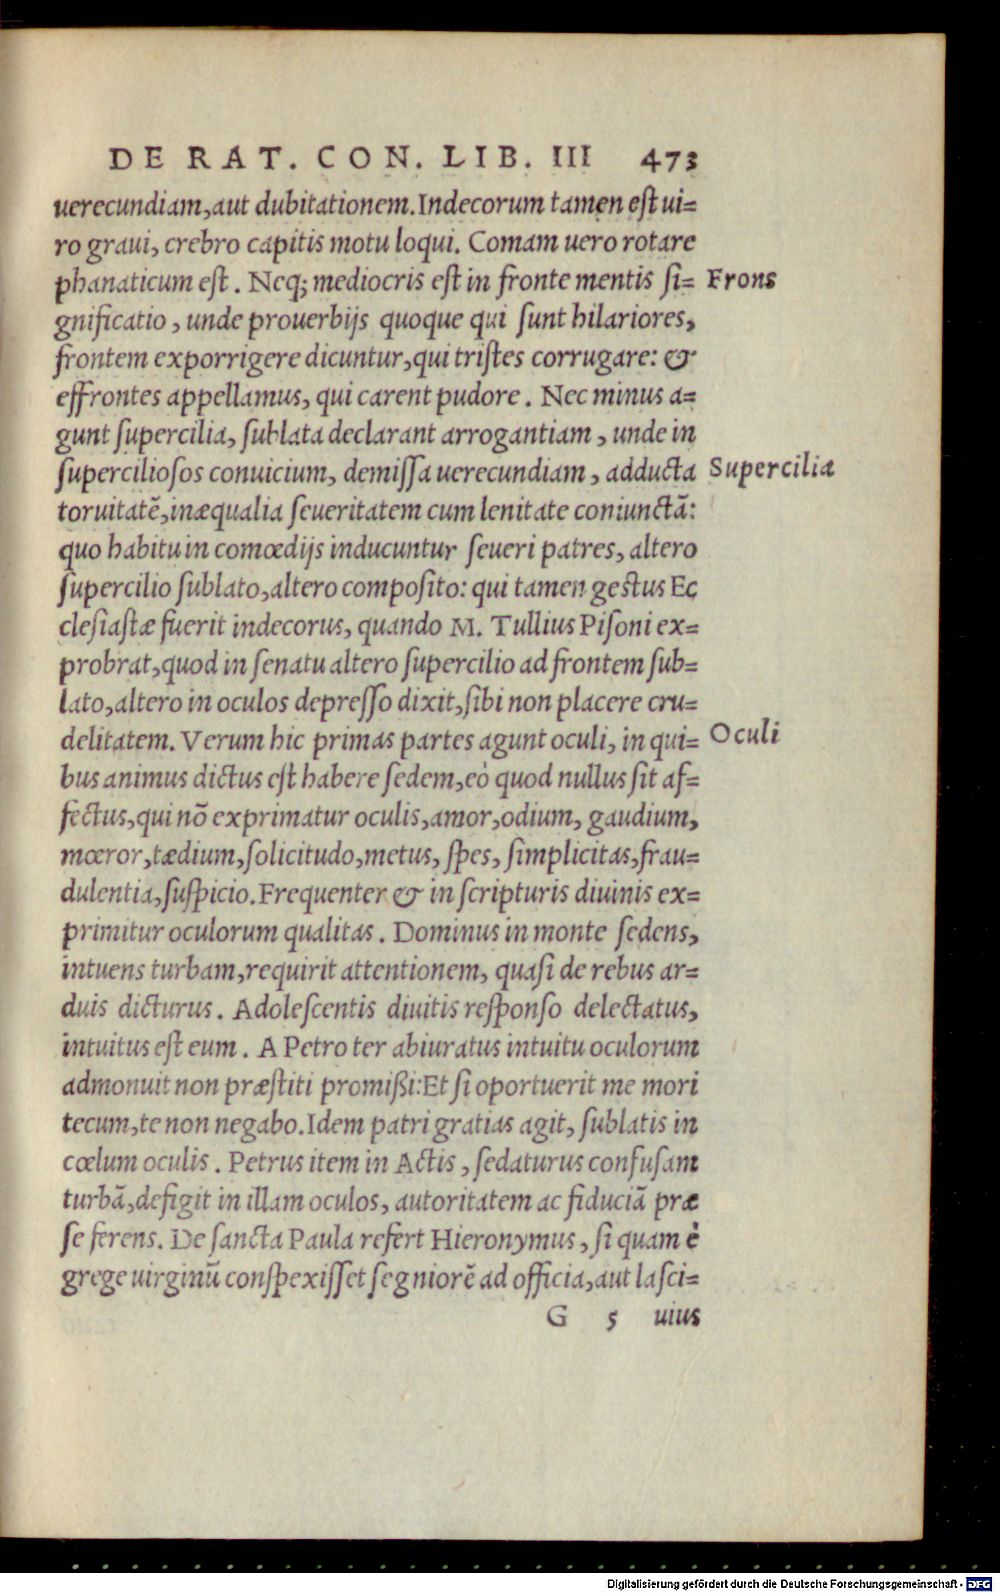 DE RAT. CON. LIB. III 473
uerecundiam, aut dubitationem. Indecorum tamen est ui=
ro graui, crebro capitis motu loqui. Comam uero rotare
phanaticum est. Neq; mediocris est in fronte mentis si= Frons
gnificatio, unde prouerbijs quoque qui sunt hilariores,
frontem exporrigere dicuntur, qui tristes corrugare: &
effrontes appellamus, qui carent pudore. Nec minus a=
gunt supercilia, sublata declarant arrogantiam, unde in
superciliosos conuicium, demissa uerecundiam, adducta Supercilia
toruitatē, inæqualia seueritatem cum lenitate coniunctā:
quo habitu in comœdijs inducuntur seueri patres, altero
supercilio sublato, altero composito: qui tamen gestus Ec
clesiastæ fuerit indecorus, quando M. Tullius Pisoni ex=
probrat, quod in senatu altero supercilio ad frontem sub=
lato, altero in oculos depresso dixit, sibi non placere cru=
delitatem. Verum hic primas partes agunt oculi, in qui= Oculi
bus animus dictus est habere sedem, eò quod nullus sit af=
fectus, qui nō exprimatur oculis, amor, odium, gaudium,
mœror, tædium, solicitudo, metus, spes, simplicitas, frau=
dulentia, suspicio. Frequenter & in scripturis diuinis ex=
primitur oculorum qualitas. Dominus in monte sedens,
intuens turbam, requirit attentionem, quasi de rebus ar=
duis dicturus. Adolescentis diuitis responso delectatus,
intuitus est eum. A Petro ter abiuratus intuitu oculorum
admonuit non præstiti promißi: Et si oportuerit me mori
tecum, te non negabo. Idem patri gratias agit, sublatis in
cœlum oculis. Petrus item in Actis, sedaturus confusam
turbā, defigit in illam oculos, autoritatem ac fiduciā præ
se ferens. De sancta Paula refert Hieronymus, si quam è
grege uirginū conspexisset segniorē ad officia, aut lasci=
G 5 uius
Digitalisierung gefördert durch die Deutsche Forschungsgemeinschaft - DFG